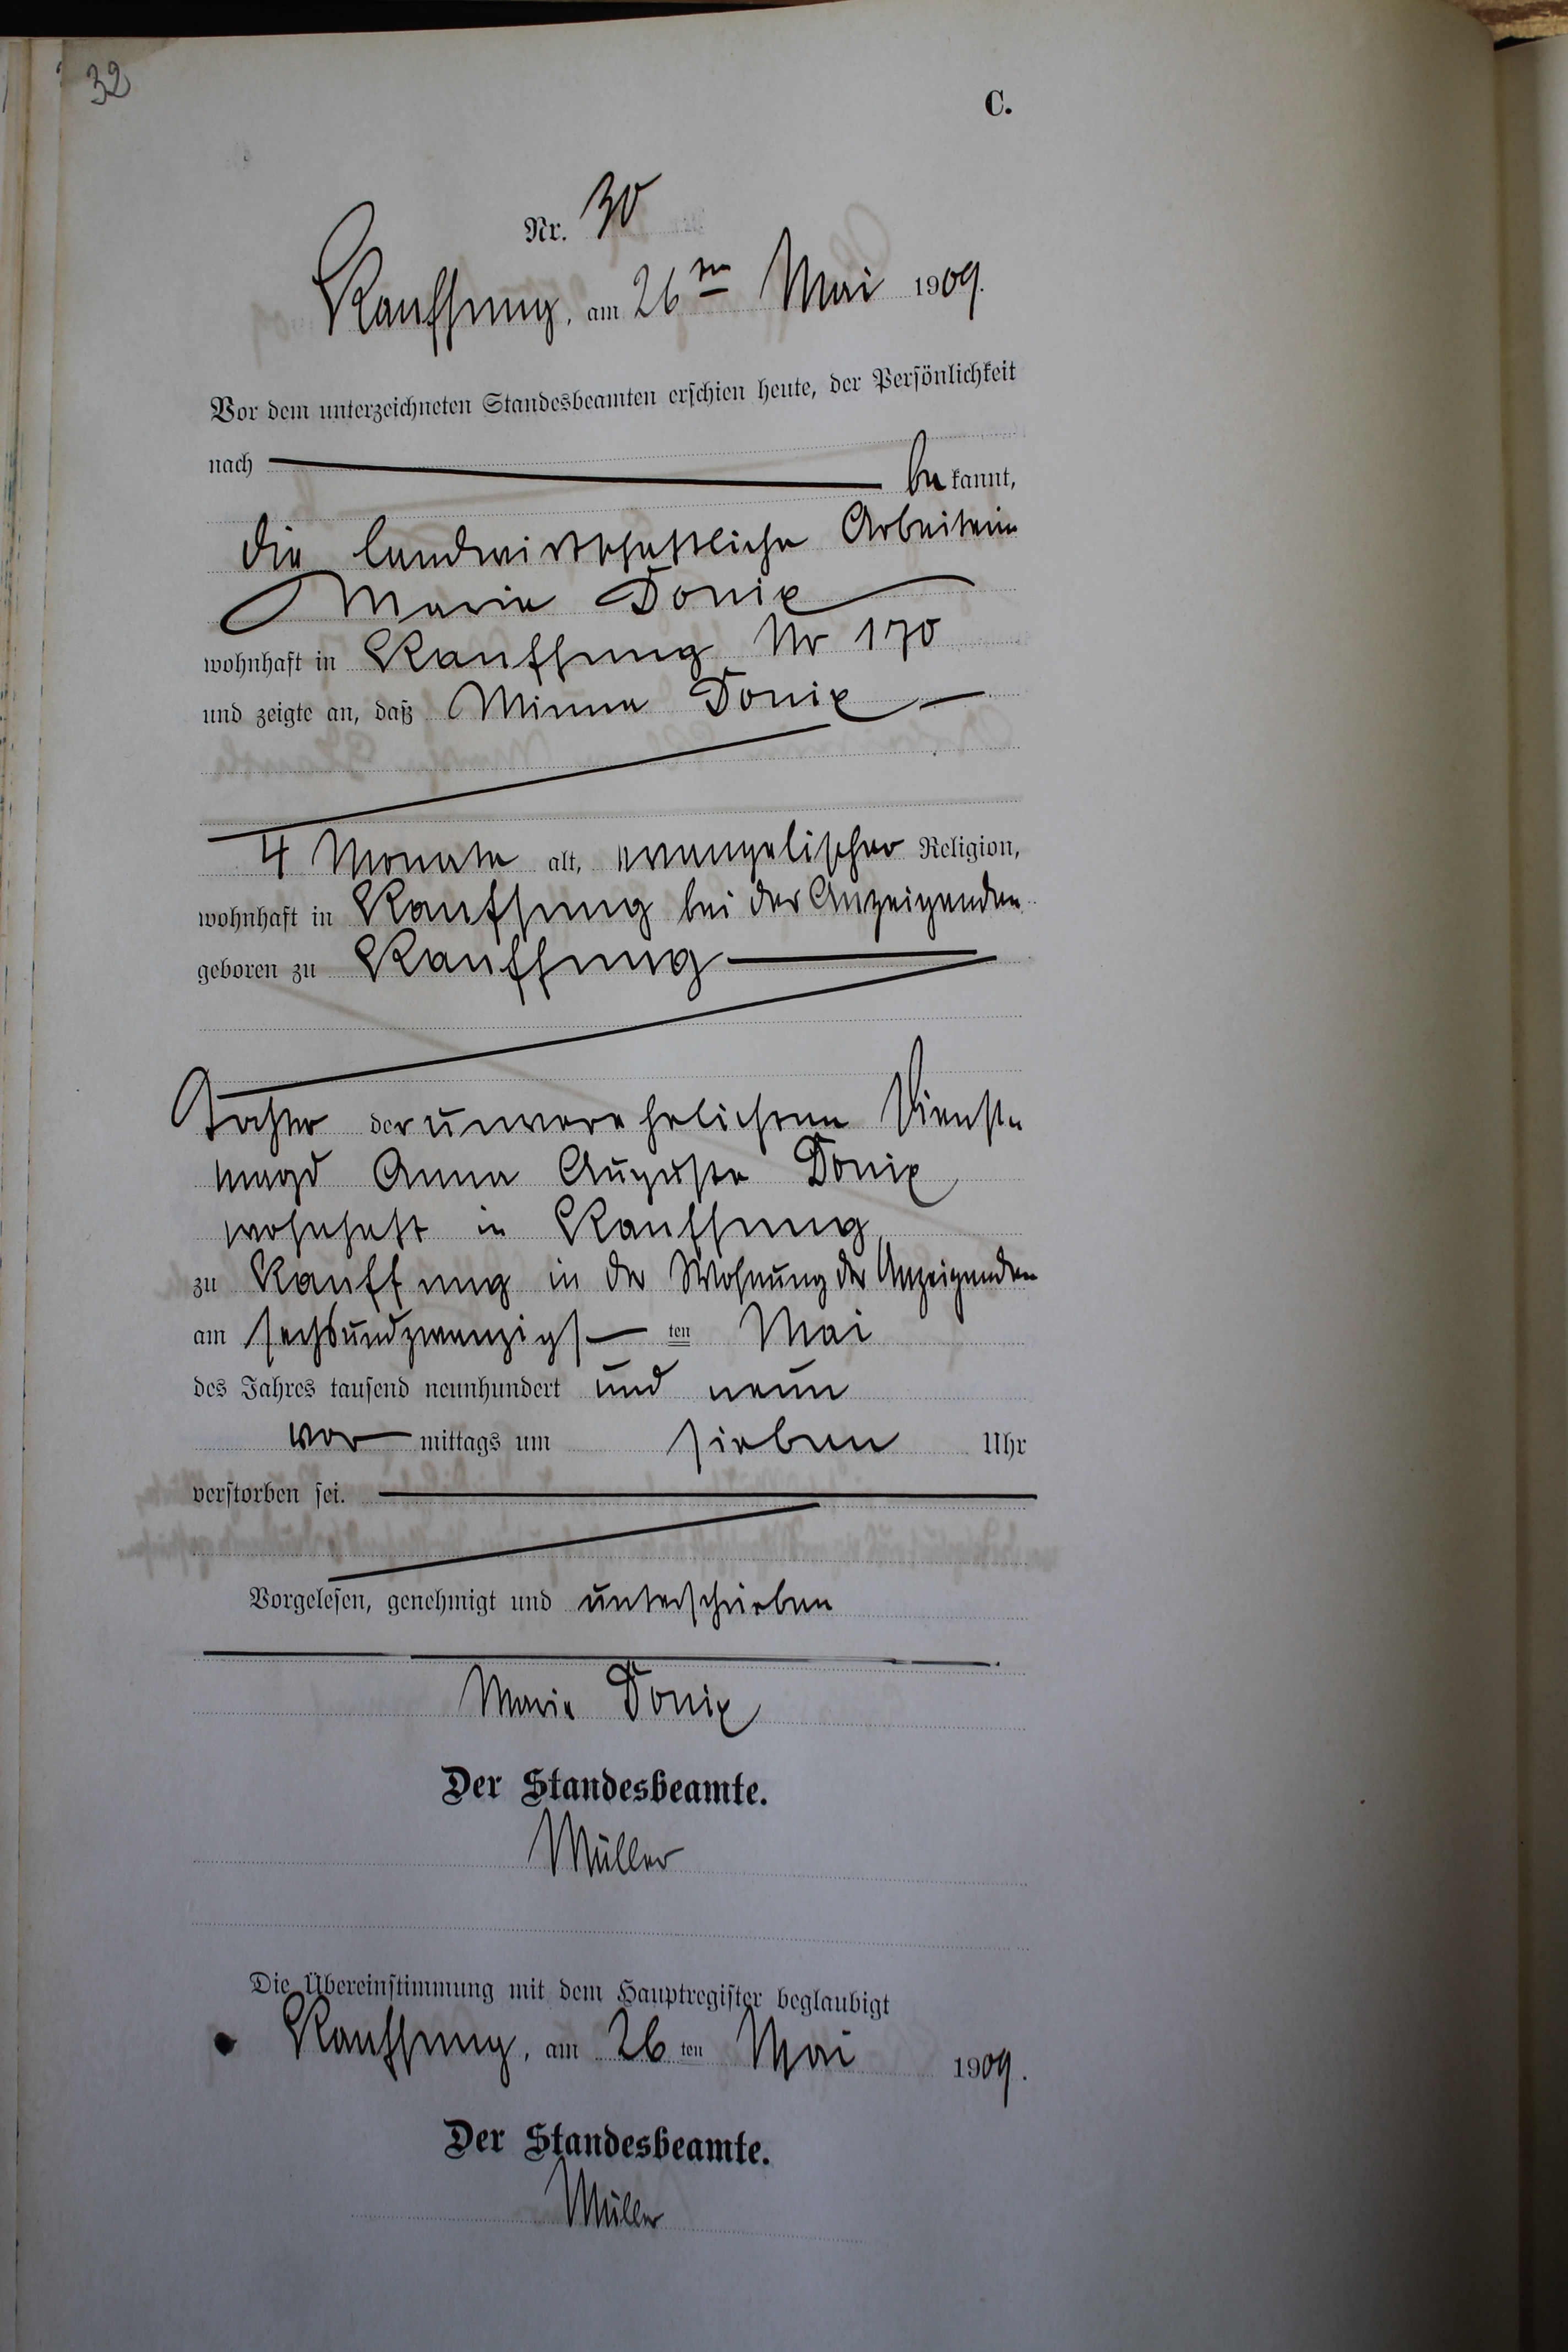 32
C.
Nr. 30
Kauffung, am 26ten Mai 1909.
Vor dem unterzeichneten Standesbeamten erschien heute, der Persönlichkeit
nach be kannt,
die landwirthschaftliche Arbeiterin
Marie Tonix
wohnhaft in Kauffung Nr 170
und zeigte an, daß Minna Tonix
4 Monate alt, evangelischer Religion,
wohnhaft in Kauffung bei der Anzeigenden
geboren zu Kauffung
Tochter der unverehelichten Dienst-
magd Anna Auguste Tonix
wohnhaft in Kauffung
zu Kauffung in der Wohnung der Anzeigenden
am sechsundzwanzigs ten Mai
des Jahres tausend neunhundert und neun
vor mittags um sieben Uhr
verstorben sei.
Vorgelesen, genehmigt und unterschrieben
Marie Tonix
Der Standesbeamte.
Müller
Die Übereinstimmung mit dem Hauptregister beglaubigt
Kauffung, am 26 ten Mai 1909.
Der Standesbeamte.
Müller